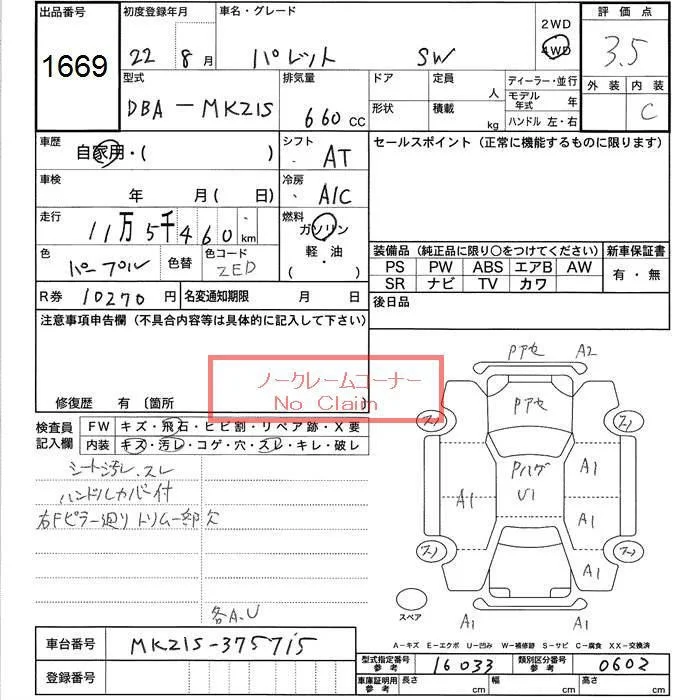 出品番号 初度登録年月 車名・グレード 2WD 評価点
1669 22年 8月 パレット SW 4WD 3.5
外装 内装
C
型式 排気量 ドア 定員 人 ディーラー・並行
DBA-MK21S 660 CC 形状 積載 kg モデル年式 年
ハンドル 左・右
車歴 自家用・( ) シフト AT セールスポイント(正常に機能するものに限ります)
車検 年 月( 日) 冷房 A/C
走行 11万5千460km 燃料 ガソリン
軽・油
( )
色 パープル 色替 色コード ZED
装備品(純正品に限り○をつけてください) 新車保証書
PS PW ABS エアB AW 有・無
SR ナビ TV カワ
R券 10270円 名変通知期限 月 日 後日品
注意事項申告欄(不具合内容等は具体的に記入して下さい)
ノークレームコーナー
No Claim
修復歴 有 〔箇所
検査員記入欄 FW キズ・飛石・ヒビ割・リペア跡・X要
内装 キズ・汚レ・コゲ・穴・スレ・キレ・破レ
シート汚レ.スレ
ハンドルカバー付
右Fピラー廻リトリム一部欠
各A.U
Pアセ A2
Pアセ
Pハゲ A1
U1
A1 A1
A1
A1 A1
スペア
A-キズ E-エクボ U-凹み W-補修跡 S-サビ C-腐食 XX-交換済
車台番号 MK21S-375715
登録番号
型式指定番号 参考 16033 類別区分番号 参考 0602
車庫証明用 参考 長さ cm 幅 cm 高さ cm